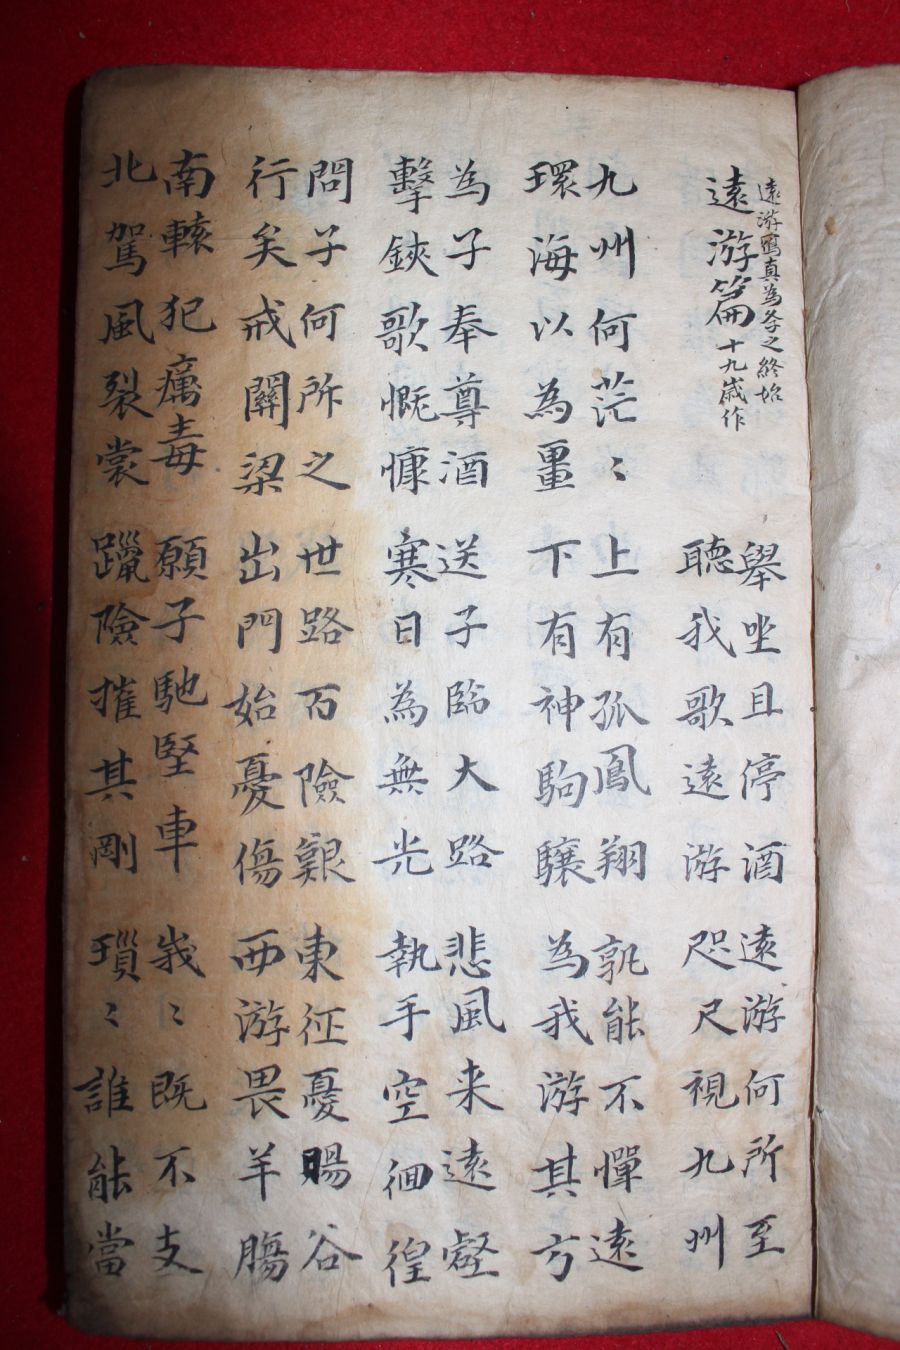 遠游寫真為之終始
遠游篇 十九歲作
擧坐且停酒
聽我歌遠游
遠游何所至
咫尺視九州
九州何茫〻
環海以為畺
上有孤鳳翔
下有神駒驤
孰能不憚遠
為我游其方
為子奉尊酒
擊鋏歌慨慷
送子臨大路
寒日為無光
悲風来遠壑
執手空徊徨
問子何所之
行矣戒關梁
世路百險艱
出門始憂傷
東征憂暘谷
西游畏羊腸
南轅犯癘毒
北駕風裂裳
願子馳堅車
躐險摧其剛
峩〻既不支
瑣〻誰能當